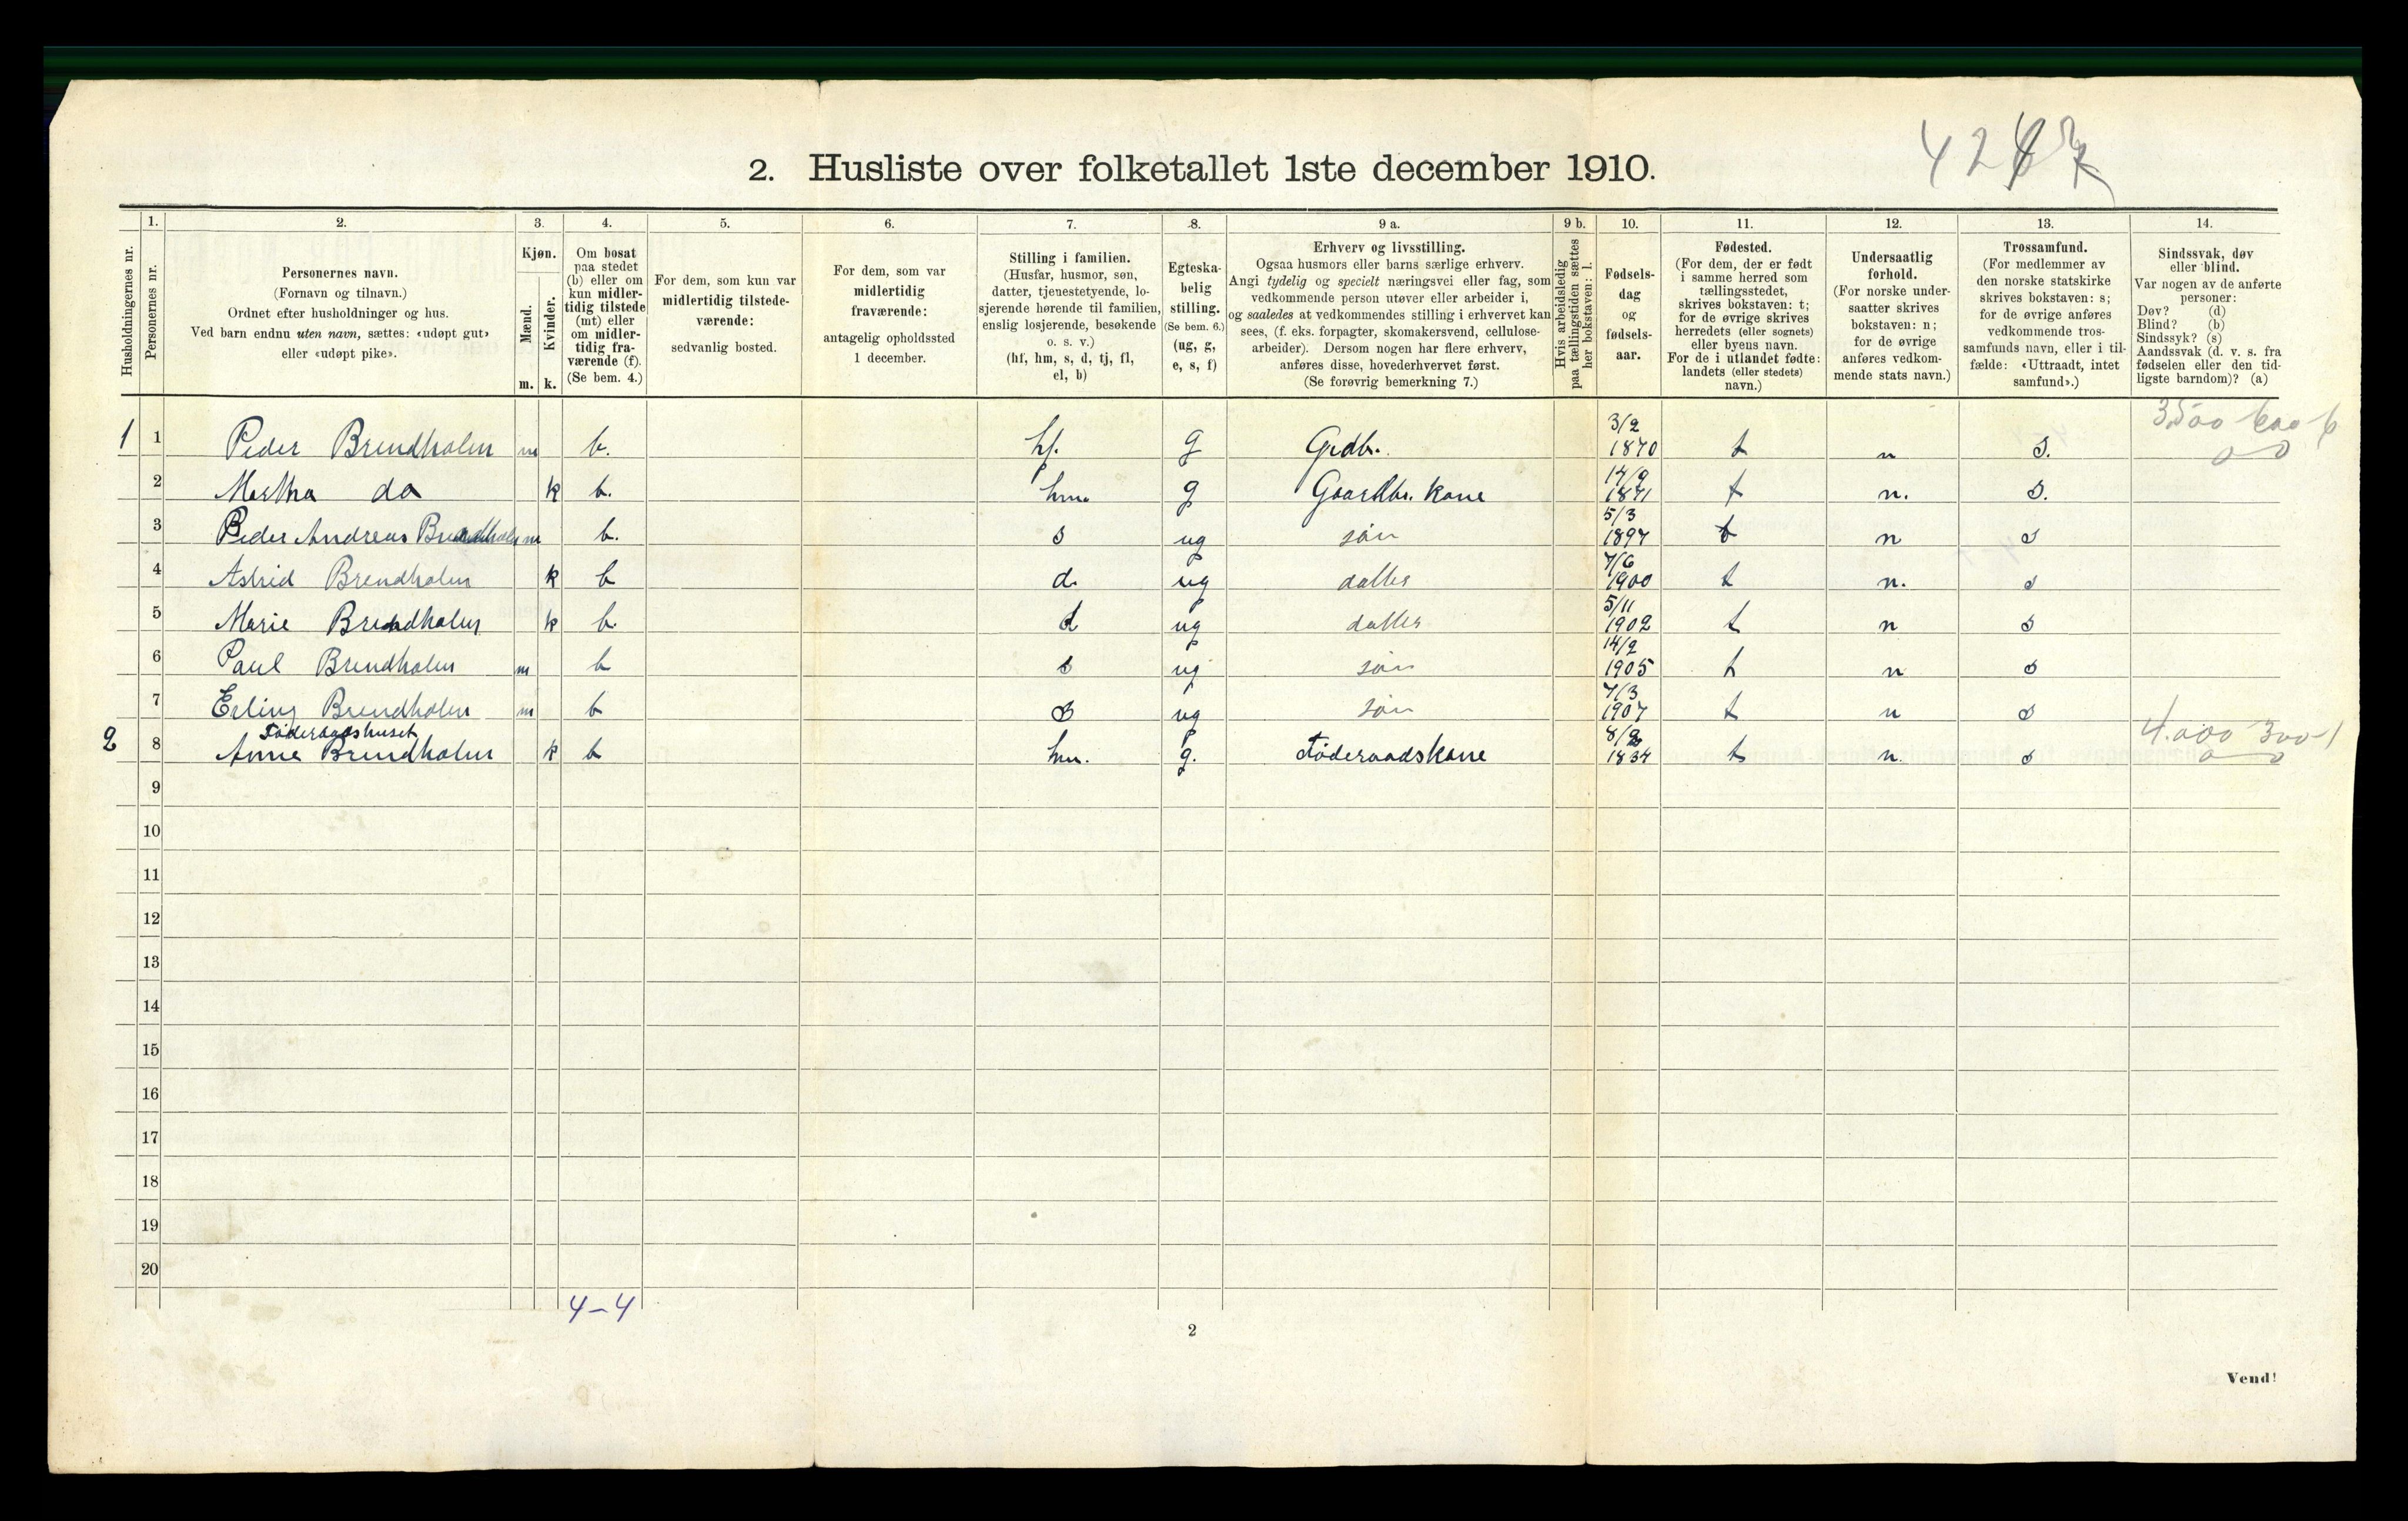 2. Husliste over folketallet 1ste december 1910.
Husholdningernes nr.
1.
Personernes nr.
2.
Personernes navn.
(Fornavn og tilnavn.)
Ordnet efter husholdninger og hus.
Ved barn endnu uten navn, sættes: «udøpt gut»
eller «udøpt pike».
3.
Kjøn.
Mænd.
Kvinder.
m. k.
4.
Om bosat
paa stedet
(b) eller om
kun midler-
tidig tilstede
(mt) eller
om midler-
tidig fra-
værende (f).
(Se bem. 4.)
5.
For dem, som kun var
midlertidig tilstede-
værende:
sedvanlig bosted.
6.
For dem, som var
midlertidig
fraværende:
antagelig opholdssted
1 december.
7.
Stilling i familien.
(Husfar, husmor, søn,
datter, tjenestetyende, lo-
sjerende hørende til familien,
enslig losjerende, besøkende
o. s. v.)
(hf, hm, s, d, tj, fl,
el, b)
8.
Egteska-
belig
stilling.
(Se bem. 6.)
(ug, g,
e, s, f)
9 a.
Erhverv og livsstilling.
Ogsaa husmors eller barns særlige erhverv.
Angi tydelig og specielt næringsvei eller fag, som
vedkommende person utøver eller arbeider i,
og saaledes at vedkommendes stilling i erhvervet kan
sees, (f. eks. forpagter, skomakersvend, cellulose-
arbeider). Dersom nogen har flere erhverv,
anføres disse, hovederhvervet først.
(Se forøvrig bemerkning 7.)
9 b.
Hvis arbeidsledig
paa tællingstiden sættes
her bokstaven: l.
10.
Fødsels-
dag
og
fødsels-
aar.
11.
Fødested.
(For dem, der er født
i samme herred som
tællingsstedet,
skrives bokstaven: t;
for de øvrige skrives
herredets (eller sognets)
eller byens navn.
For de i utlandet fødte:
landets (eller stedets)
navn.)
12.
Undersaatlig
forhold.
(For norske under-
saatter skrives
bokstaven: n;
for de øvrige
anføres vedkom-
mende stats navn.)
13.
Trossamfund.
(For medlemmer av
den norske statskirke
skrives bokstaven: s;
for de øvrige anføres
vedkommende tros-
samfunds navn, eller i til-
fælde: «Uttraadt, intet
samfund».)
14.
Sindssvak, døv
eller blind.
Var nogen av de anførte
personer:
Døv? (d)
Blind? (b)
Sindssyk? (s)
Aandssvak (d. v. s. fra
fødselen eller den tid-
ligste barndom)? (a)
1 1 Peder Brendholen m b. hf. g Grdbr. 3/2 1870 t n s. 3500 600 6
2 Martha do k b. hm. g Gaardbr. kone 14/9 1871 t n. s.
3 Peder Andreas Brendholen m b. s ug søn 5/3 1897 t n s
4 Astrid Brendholen k b d. ug datter 7/6 1900 t n. s
5 Marie Brendholen k b. d ug datter 5/11 1902 t n s
6 Paul Brendholen m b s ug søn 14/2 1905 t n s
7 Erling Brendholen m b s ug søn 7/3 1907 t n s
Føderaadshuset
2 8 Anne Brendholen k b hm. g. Føderaadskone 1834 t n. s 4.000 300-1
9
10
11
12
13
14
15
16
17
18
19
20
4-4
2
Vend!